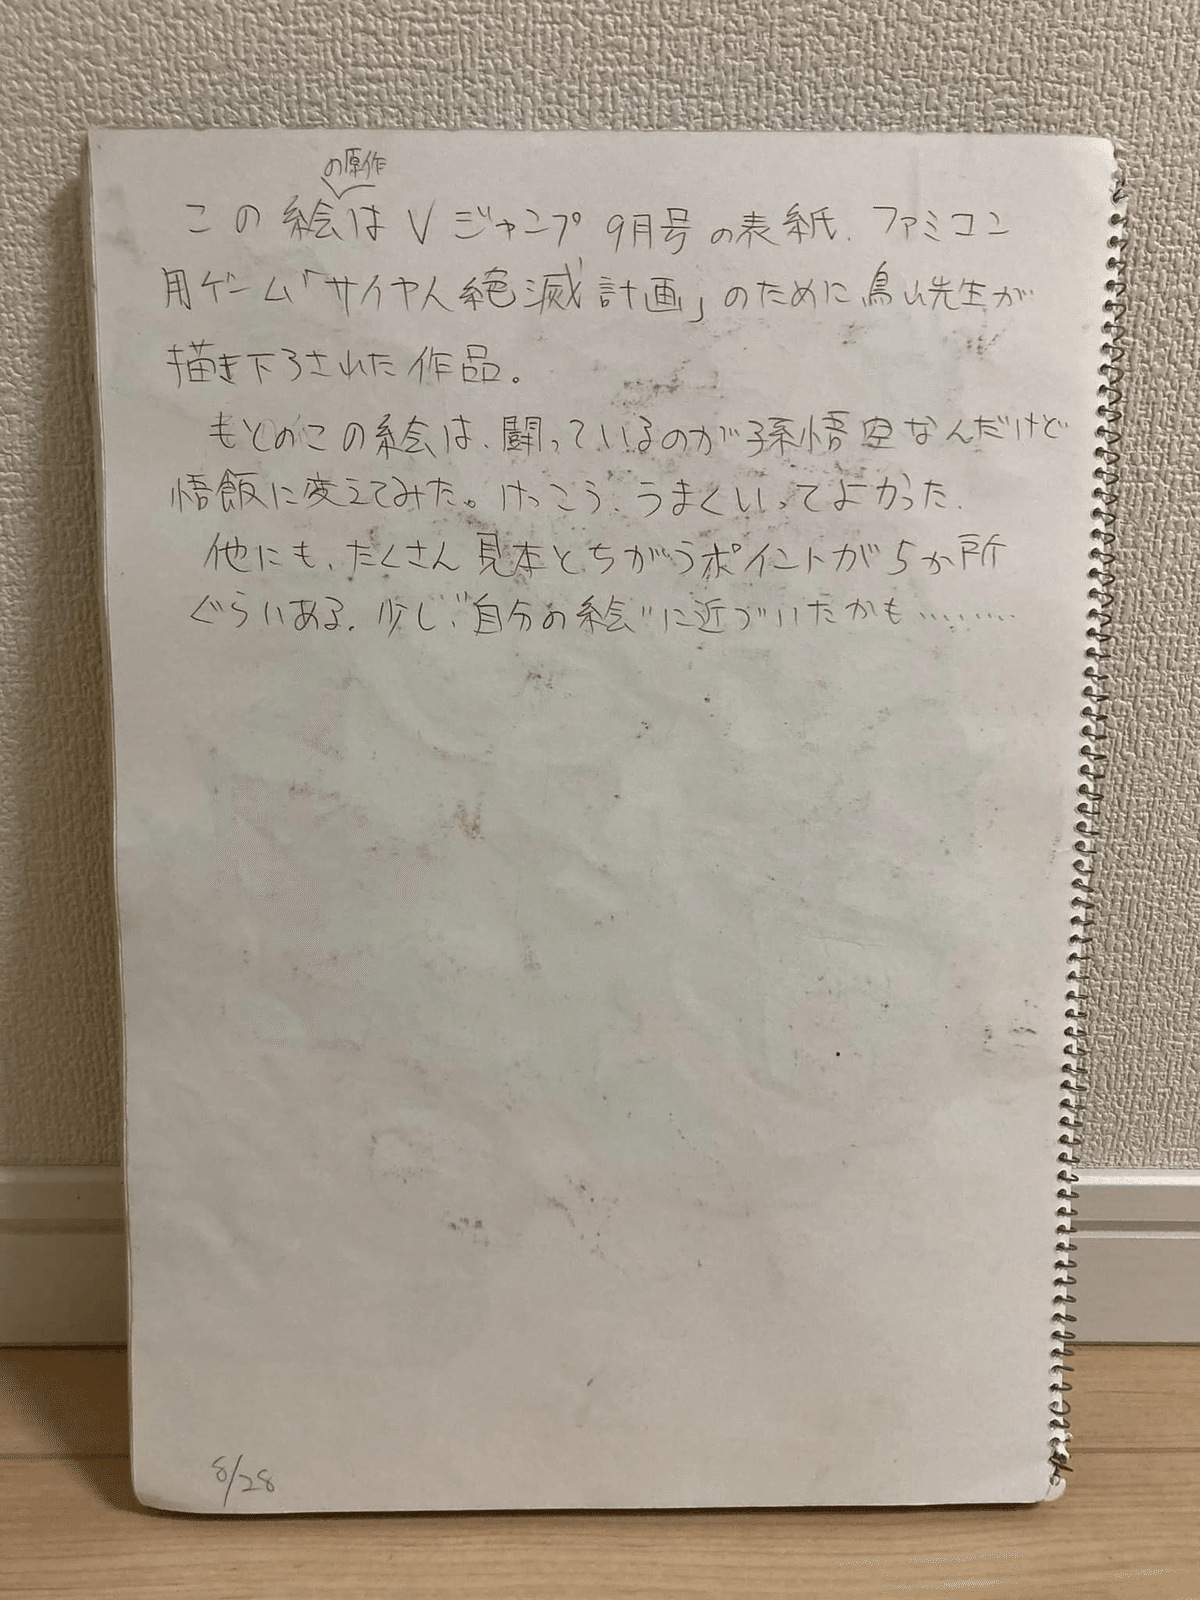 の原作
この絵はVジャンプ9月号の表紙、ファミコン
用ゲーム「サイヤ人絶滅計画」のために鳥山先生が
描き下ろされた作品。
もとのこの絵は、闘っているのが孫悟空なんだけど
悟飯に変えてみた。けっこう、うまくいってよかった、
他にも、たくさん見本とちがうポイントが5か所
ぐらいある、少し“自分の絵”に近づいたかも………
8/28